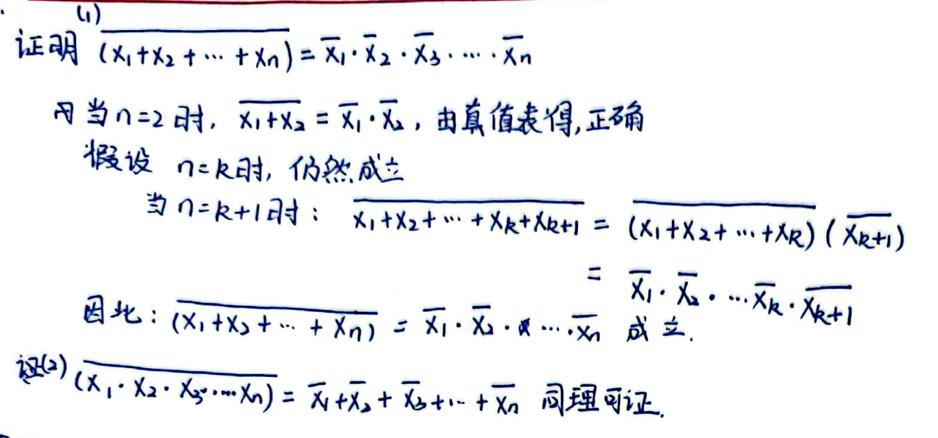 (1)
证明 $\overline{(x_1+x_2+\cdots+x_n)}=\overline{x}_1\cdot\overline{x}_2\cdot\overline{x}_3\cdot\cdots\cdot\overline{x}_n$
当n=2时, $\overline{x_1+x_2}=\overline{x}_1\cdot\overline{x}_2$, 由真值表得,正确
假设 n=k时, 仍然成立
当n=k+1时: $\overline{x_1+x_2+\cdots+x_k+x_{k+1}}=\overline{(x_1+x_2+\cdots+x_k)}(\overline{x_{k+1}})$
$=\overline{x}_1\cdot\overline{x}_2\cdot\cdots\overline{x}_k\cdot\overline{x_{k+1}}$
因此: $\overline{(x_1+x_2+\cdots+x_n)}=\overline{x}_1\cdot\overline{x}_2\cdot\cdots\cdot\overline{x}_n$ 成立.
证(2) $\overline{(x_1\cdot x_2\cdot x_3\cdots x_n)}=\overline{x}_1+\overline{x}_2+\overline{x}_3+\cdots+\overline{x}_n$ 同理可证.